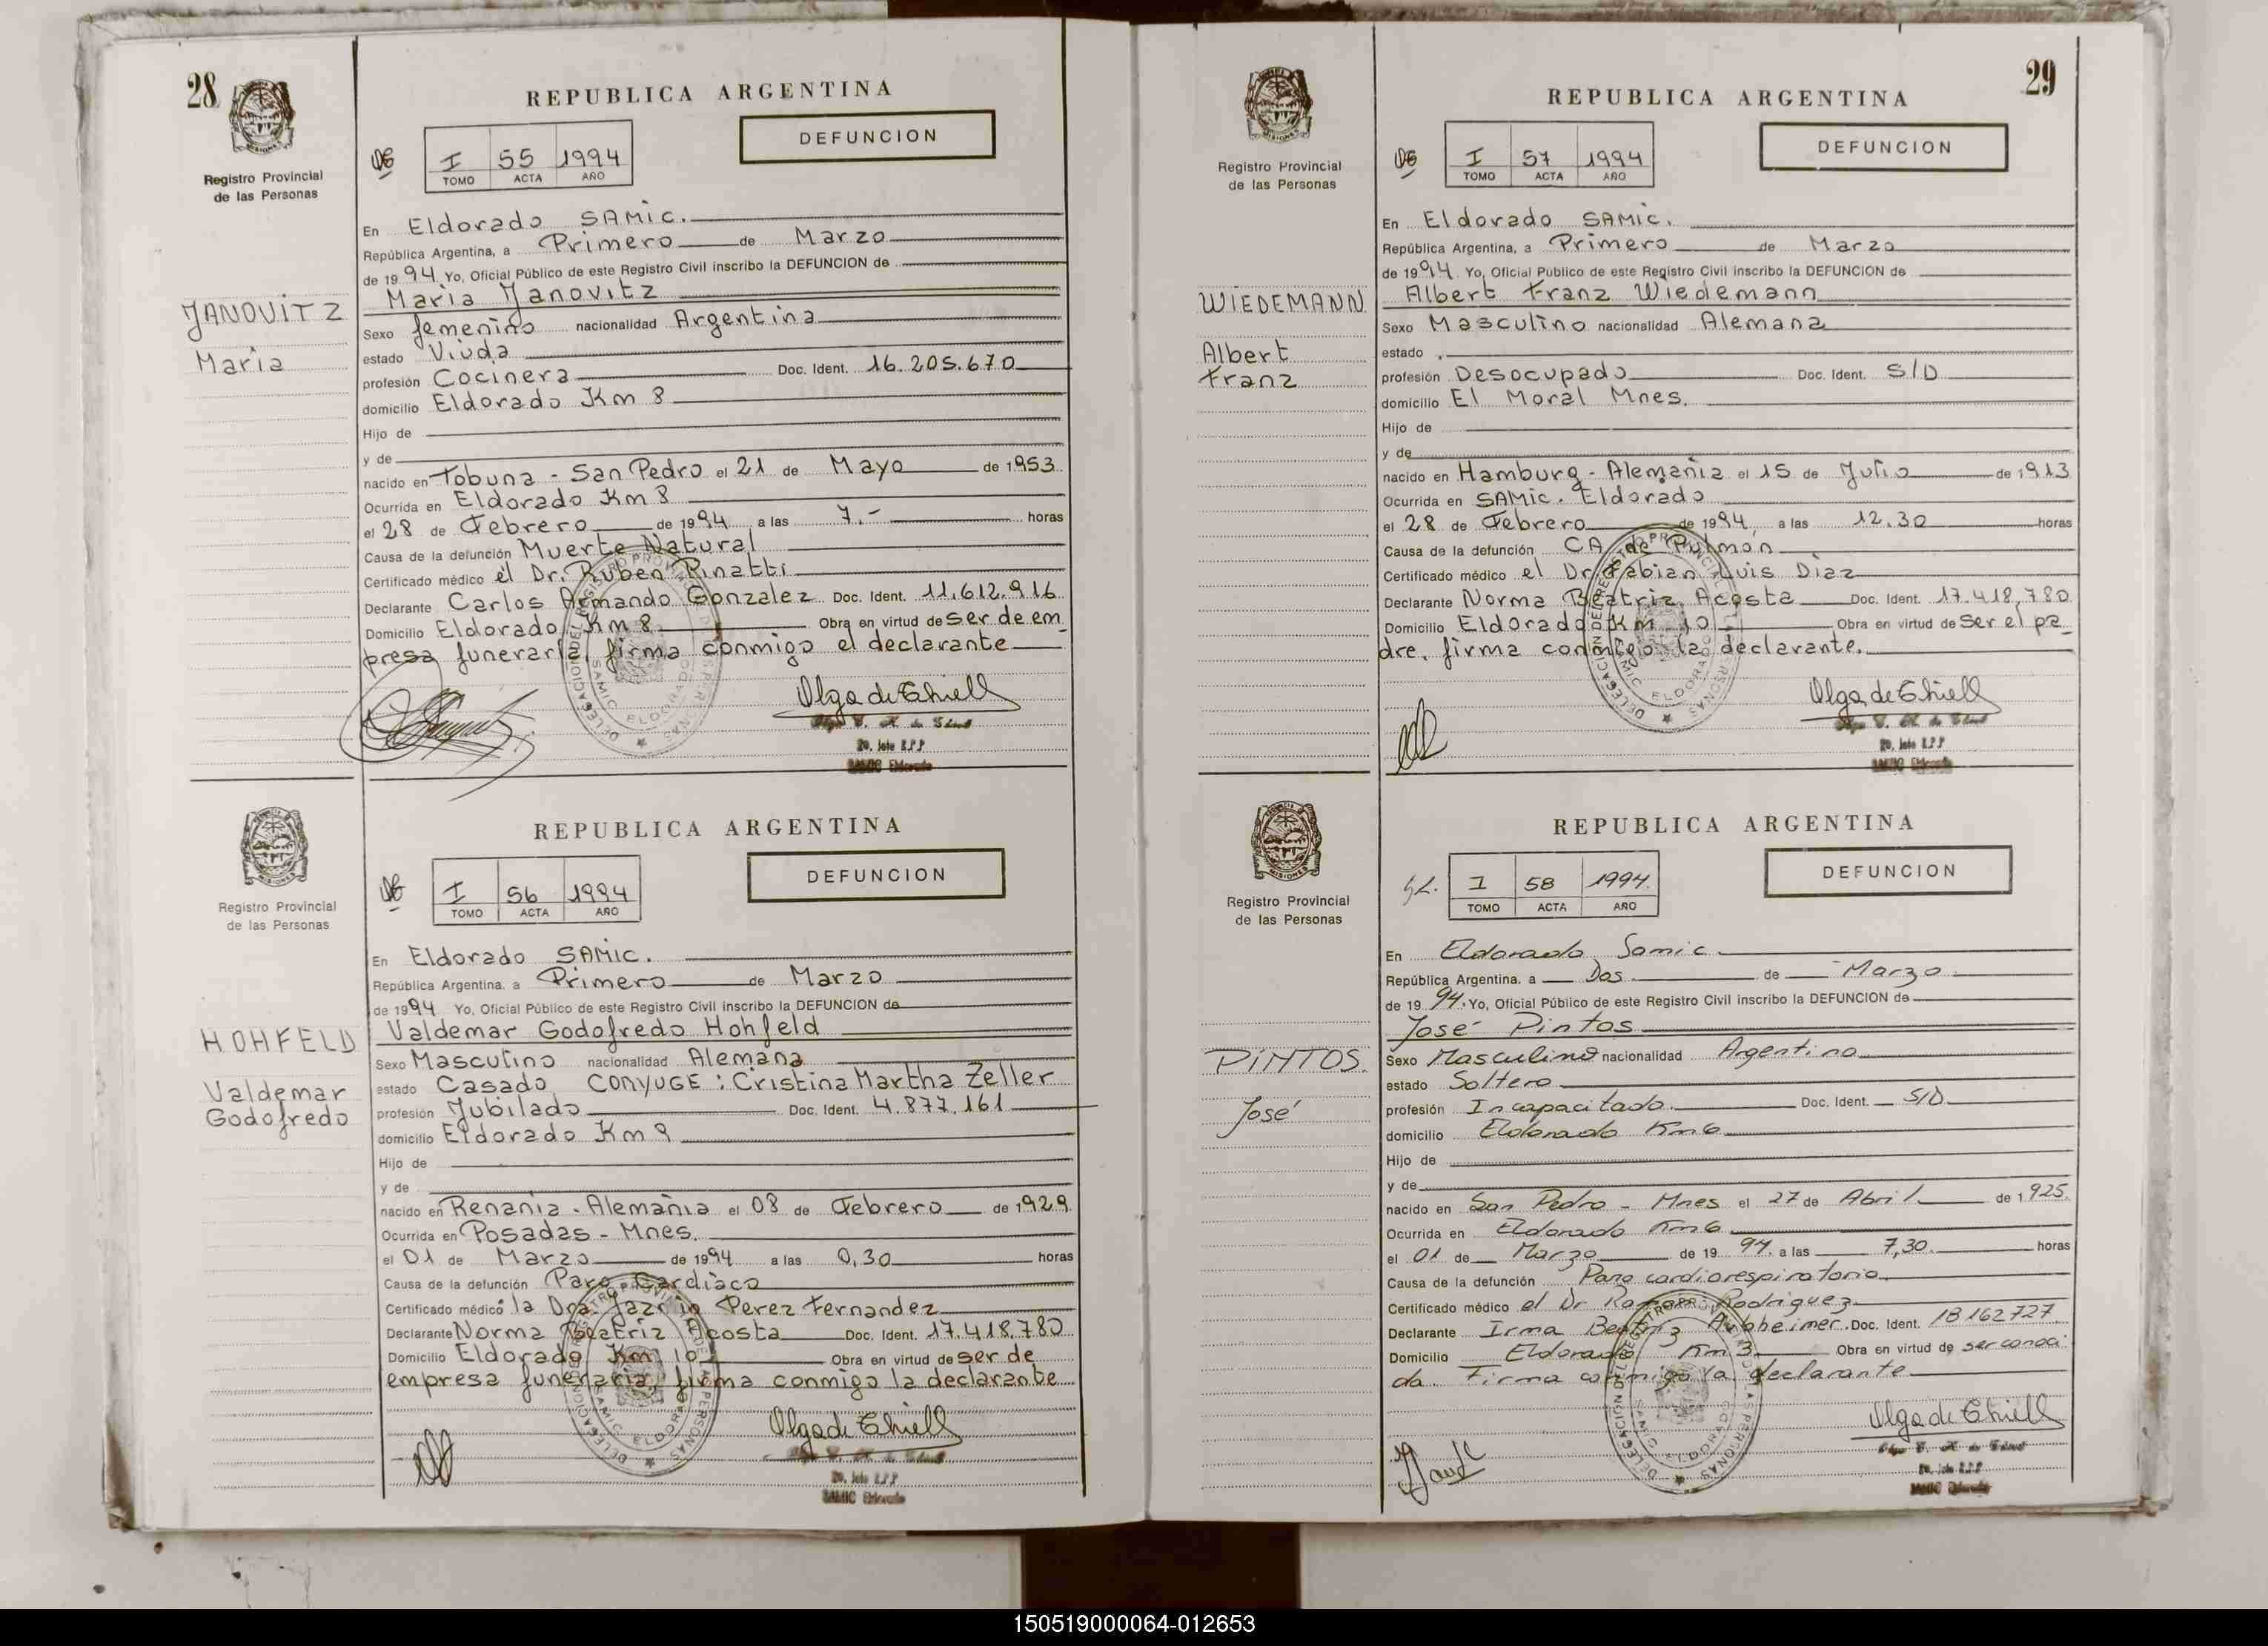 28
Registro Provincial
de las Personas
REPUBLICA ARGENTINA
DEFUNCION
I 55 1994
TOMO ACTA AÑO
En Eldorado SAMIC.
República Argentina, a Primero de Marzo
de 1994 Yo, Oficial Público de este Registro Civil inscribo la DEFUNCION de
Maria Janovitz
JANOVITZ
Maria
Sexo femenino nacionalidad Argentina
estado Viuda
profesión Cocinera Doc. Ident. 16.205.670
domicilio Eldorado Km 8
Hijo de
y de
nacido en Tobuna - San Pedro el 21 de Mayo de 1953
Ocurrida en Eldorado Km 8
el 28 de Febrero de 1994 a las 7.- horas
Causa de la defunción Muerte Natural
Certificado médico el Dr. Ruben Pinatti
Declarante Carlos Armando Gonzalez Doc. Ident. 11.612.916
Domicilio Eldorado Km 8 Obra en virtud de ser de em
presa funeraria, firma conmigo el declarante
Olga de Thiell
SAMIC Eldorado
Registro Provincial
de las Personas
REPUBLICA ARGENTINA
DEFUNCION
I 56 1994
TOMO ACTA AÑO
En Eldorado SAMIC.
República Argentina, a Primero de Marzo
de 1994 Yo, Oficial Público de este Registro Civil inscribo la DEFUNCION de
Valdemar Godofredo Hohfeld
HOHFELD
Valdemar
Godofredo
Sexo Masculino nacionalidad Alemana
estado Casado CONYUGE: Cristina Martha Zeller
profesión Jubilado Doc. Ident. 4.877.161
domicilio Eldorado Km 9
Hijo de
y de
nacido en Renania - Alemania el 08 de Febrero de 1929
Ocurrida en Posadas - Mnes.
el 01 de Marzo de 1994 a las 0,30 horas
Causa de la defunción Paro Cardiaco
Certificado médico la Dra. Perez Fernandez
Declarante Norma Beatriz Acosta Doc. Ident. 17.418.780
Domicilio Eldorado Km 10 Obra en virtud de ser de
empresa funeraria, firma conmigo la declarante
Olga de Thiell
SAMIC Eldorado
29
Registro Provincial
de las Personas
REPUBLICA ARGENTINA
DEFUNCION
I 57 1994
TOMO ACTA AÑO
En Eldorado SAMIC.
República Argentina, a Primero de Marzo
de 1994 Yo, Oficial Público de este Registro Civil inscribo la DEFUNCION de
Albert Franz Wiedemann
WIEDEMANN
Albert
Franz
Sexo Masculino nacionalidad Alemana
estado
profesión Desocupado Doc. Ident. S/D
domicilio El Moral Mnes.
Hijo de
y de
nacido en Hamburg - Alemania el 15 de Julio de 1913
Ocurrida en SAMIC. Eldorado
el 28 de Febrero de 1994 a las 12.30 horas
Causa de la defunción CA de Pulmón
Certificado médico el Dr Fabian Luis Diaz
Declarante Norma Beatriz Acosta Doc. Ident. 17.418.780
Domicilio Eldorado Km 10 Obra en virtud de ser el pa
dre, firma conmigo la declarante.
Olga de Thiell
SAMIC Eldorado
Registro Provincial
de las Personas
REPUBLICA ARGENTINA
DEFUNCION
I 58 1994.
TOMO ACTA AÑO
En Eldorado Samic
República Argentina, a Dos de Marzo
de 1994. Yo, Oficial Público de este Registro Civil inscribo la DEFUNCION de
José Pintos
PINTOS.
José
Sexo Masculino nacionalidad Argentina
estado Soltero
profesión Incapacitado Doc. Ident. S/D
domicilio Eldorado Km 6
Hijo de
y de
nacido en San Pedro - Mnes el 27 de Abril de 1925.
Ocurrida en Eldorado Km 6
el 01 de Marzo de 1994. a las 7,30 horas
Causa de la defunción Paro cardiorespiratorio
Certificado médico el Dr Ramon Rodriguez
Declarante Irma Beatriz Doc. Ident. 18 162727.
Domicilio Eldorado Km 3 Obra en virtud de ser conoci
da. Firma conmigo la declarante
Olga de Thiell
SAMIC Eldorado
150519000064-012653